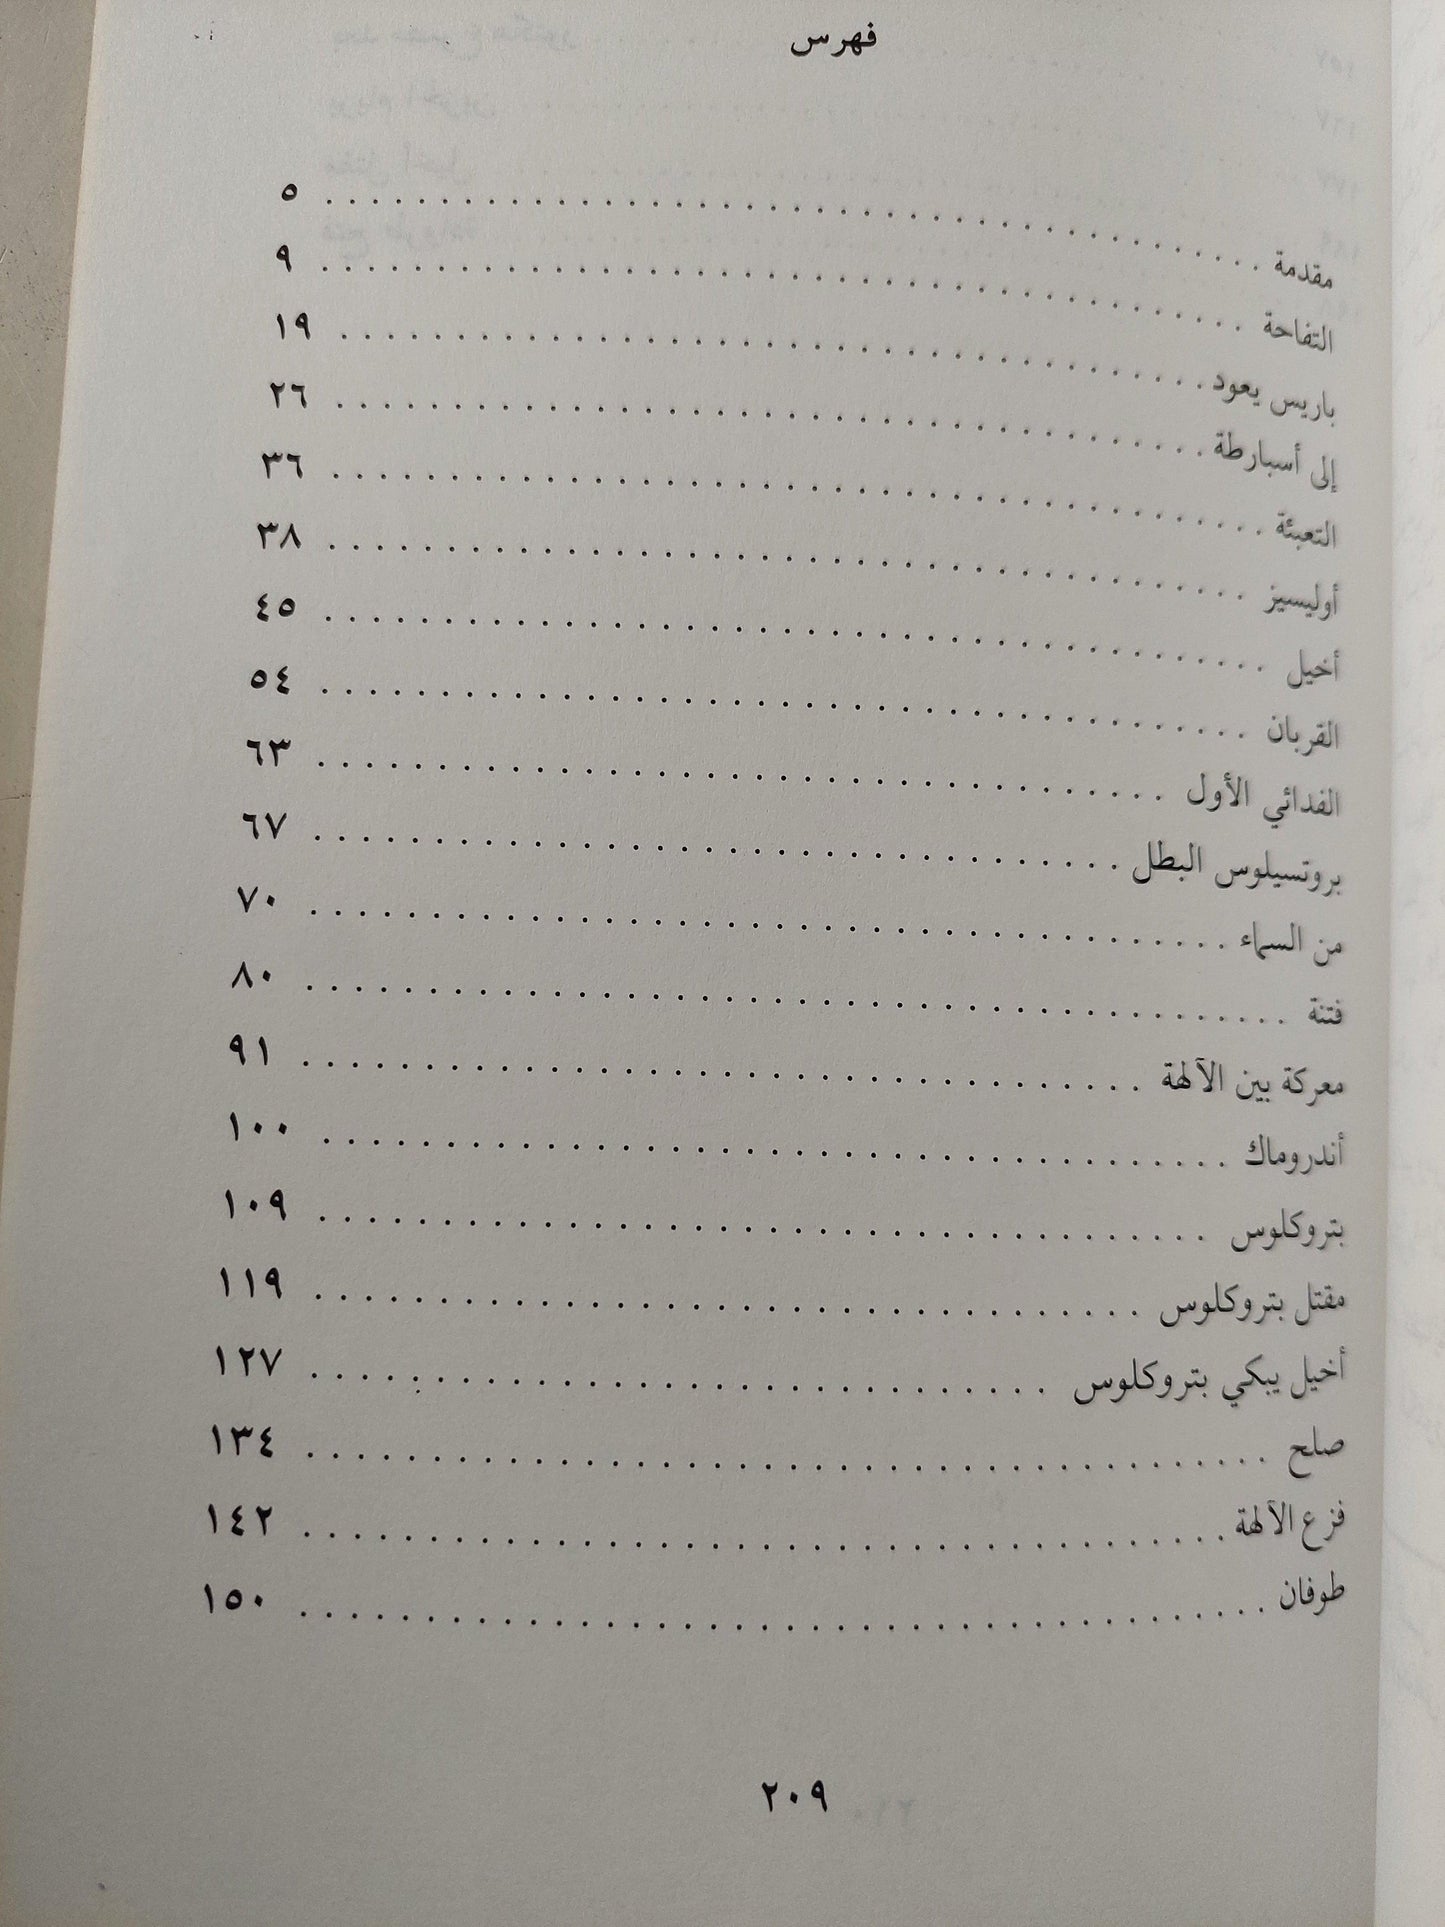 فهرس
مقدمة ٥
التفاحة ٩
باريس يعود ١٩
إلى أسبارطة ٢٦
التعبئة ٣٦
أوليسيز ٣٨
أخيل ٤٥
القربان ٥٤
الفدائي الأول ٦٣
بروتسيلوس البطل ٦٧
من السماء ٧٠
فتنة ٨٠
معركة بين الآلهة ٩١
أندروماك ١٠٠
بتروكلوس ١٠٩
مقتل بتروكلوس ١١٩
أخيل يبكي بتروكلوس ١٢٧
صلح ١٣٤
فزع الآلهة ١٤٢
طوفان ١٥٠
٢٠٩